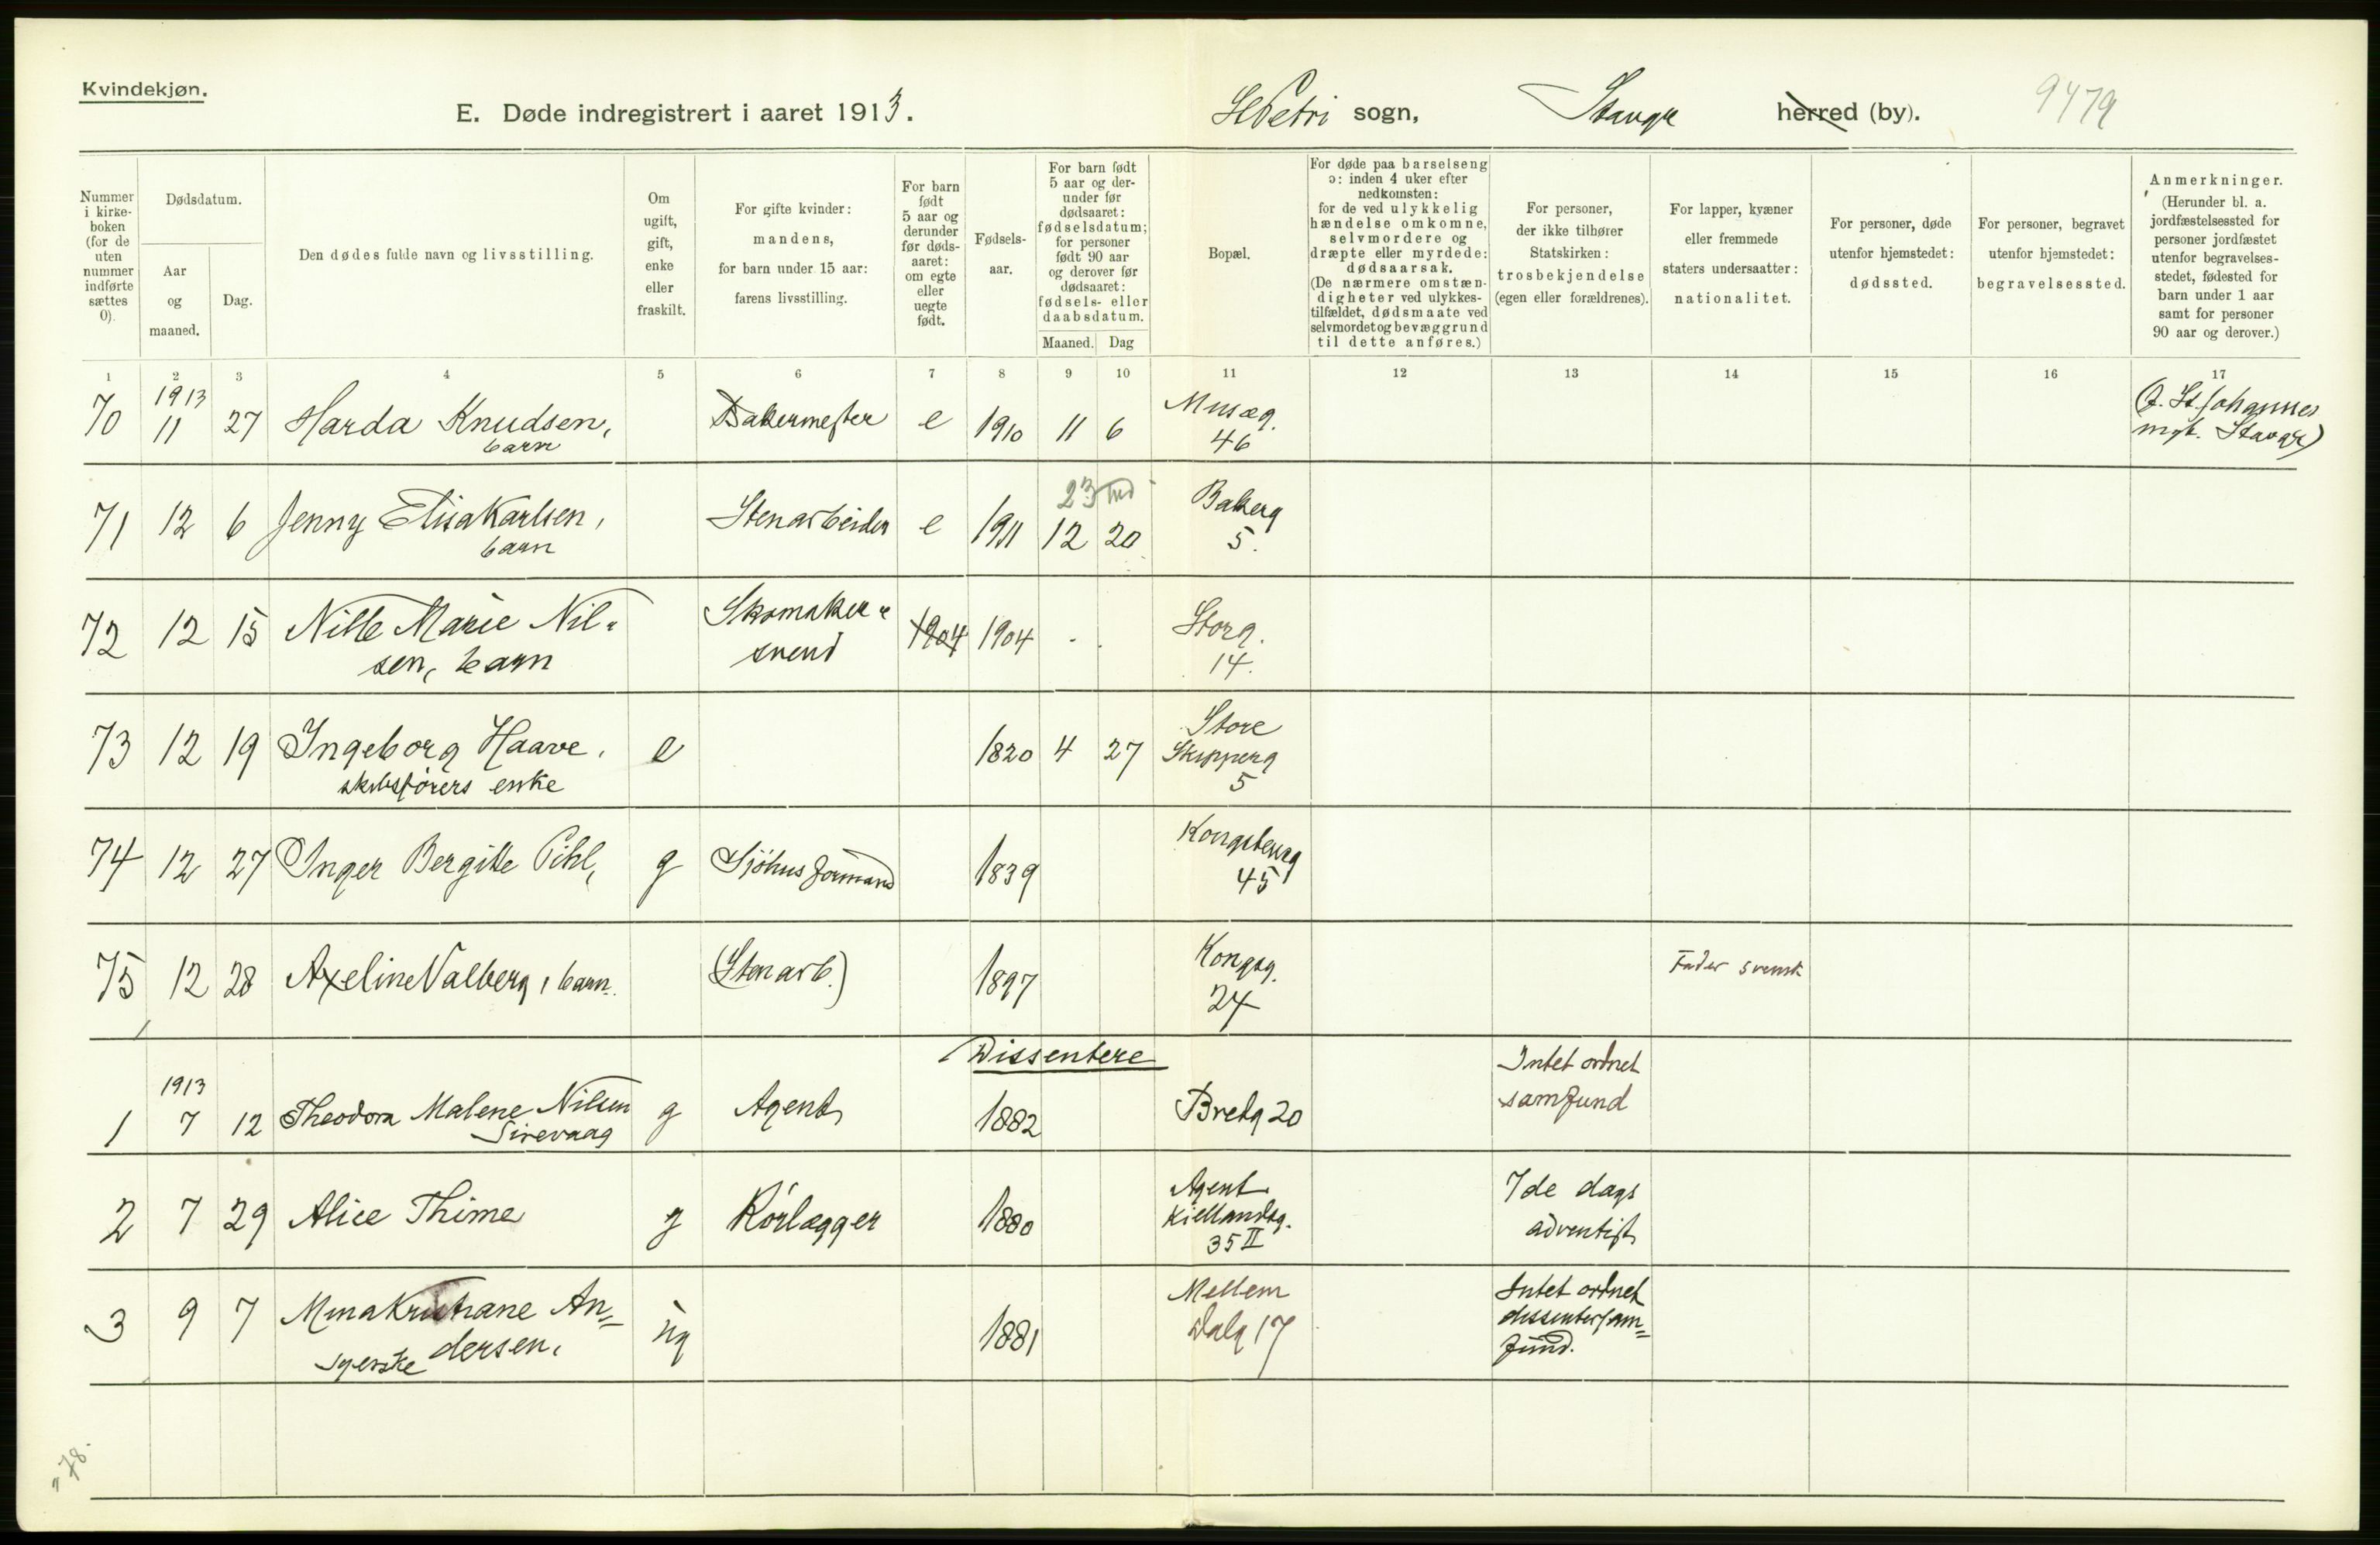 Kvindekjøn.
E. Døde indregistrert i aaret 1913.
St Petri sogn, Stavgr herred (by).
9479
Nummer i kirke-boken (for de uten nummer indførte sættes 0).
Dødsdatum.
Aar og maaned.
Dag.
Den dødes fulde navn og livsstilling.
Om ugift, gift, enke eller fraskilt.
For gifte kvinder: mandens, for barn under 15 aar: farens livsstilling.
For barn født 5 aar og derunder før døds-aaret: om egte eller uegte født.
Fødsels-aar.
For barn født 5 aar og der-under før dødsaaret: fødselsdatum; for personer født 90 aar og derover før dødsaaret: fødsels- eller daabsdatum.
Maaned. Dag
Bopæl.
For døde paa barselseng ɔ: inden 4 uker efter nedkomsten: for de ved ulykkelig hændelse omkomne, selvmordere og dræpte eller myrdede: dødsaarsak. (De nærmere omstæn-digheter ved ulykkes-tilfældet, dødsmaate ved selvmordet og bevæggrund til dette anføres.)
For personer, der ikke tilhører Statskirken: trosbekjendelse (egen eller forældrenes).
For lapper, kvæner eller fremmede staters undersaatter: nationalitet.
For personer, døde utenfor hjemstedet: dødssted.
For personer, begravet utenfor hjemstedet: begravelsessted.
Anmerkninger. (Herunder bl. a. jordfæstelsessted for personer jordfæstet utenfor begravelses-stedet, fødested for barn under 1 aar samt for personer 90 aar og derover.)
1 2 3 4 5 6 7 8 9 10 11 12 13 14 15 16 17
70 1913 11 27 Harda Knudsen, barn Bakermester e 1910 11 6 Musæg. 46 (J. St. Johannes mgt. Stavgr)
71 12 6 Jenny Elisa Karlsen, barn Stenarbeider e 1911 23 md 12 20 Bakerg 5.
72 12 15 Nille Marie Nil-sen, barn Skomaker-svend 1904 1904 Storg. 14.
73 12 19 Ingeborg Haave, skibsførers enke e 1820 4 27 Store Skipperg 5
74 12 27 Inger Bergitte Pihl, g Sjøhusformand 1839 Kongsteing 45
75 12 28 Axeline Valberg, barn. (Stenarb.) 1897 Kongsg. 24 Fader svensk
Dissentere
1 1913 7 12 Theodora Malene Nilsen Sirevaag g Agent 1882 Bredg 20 Intet ordnet samfund
2 7 29 Alice Thime g Rørlægger 1880 Agent Kiellandsg. 35 II 7de dags adventist
3 9 7 Mina Kristiane An=dersen, syerske ug 1881 Mellem Dalg 17 Intet ordnet dissentersam=fund.
" 78.